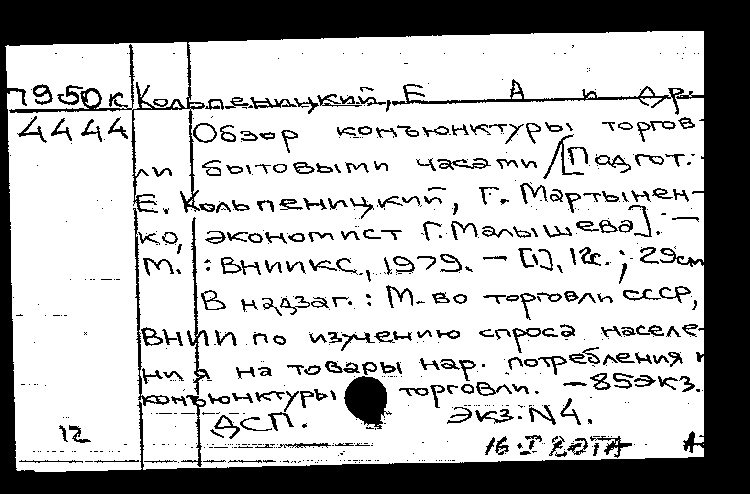 7950к Кольпеницкий, Е А и др.
4444 Обзор конъюнктуры торгов-
ли бытовыми часами / [Подгот.:
Е. Кольпеницкий, Г. Мартынен-
ко, экономист Г. Малышева]. —
М. : ВНИИКС, 1979. — [1], 12с. ; 29см
В надзаг. : М-во торговли СССР,
ВНИИ по изучению спроса населе-
ния на товары нар. потребления и
конъюнктуры торговли. — 85экз.
ДСП. Экз. N4.
12
16.I